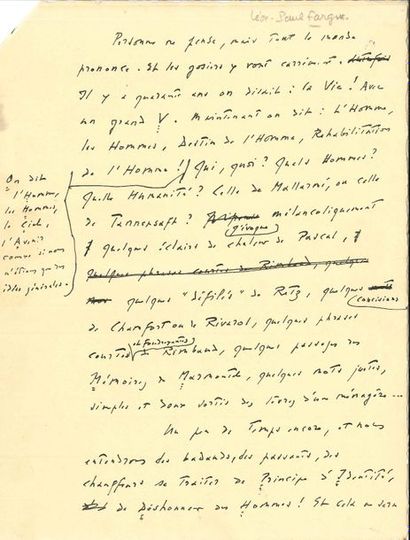 Léon-Paul Fargue.
Personne ne pense, mais tout le monde
prononce. Et les gosiers y vont carrément.
Il y a quarante ans on disait : la Vie ! Avec
un grand V. Maintenant on dit : L'Homme,
les Hommes, Destin de l'Homme, Rehabilitation
de l'Homme ! Qui, quoi ? Quels Hommes ?
Quelle Humanité ? Celle de Mallarmé, ou celle
de ? mélancoliquement
j'évoque
quelques éclairs de chaleur de Pascal,
quelques phrases courtes de Rimbaud, quelques
quelques "défilés" de Retz, quelques
concisions
de Chamfort ou de Rivarol, quelques phrases
et foudroyantes
courtes de Rimbaud, quelques passages des
Mémoires de Marmontel, quelques mots justes,
simples et doux sortis des lèvres d'une ménagère...
Un peu de temps encore, et nous
entendrons des badauds, des passants, des
chauffeurs se traiter de Principe d'Identité,
de Déshonneur des Hommes ! Et cela ne sera
On dit
l'Homme,
les Hommes,
le Ciel,
l'Avenir
comme si nous
n'étions que des
idées générales.